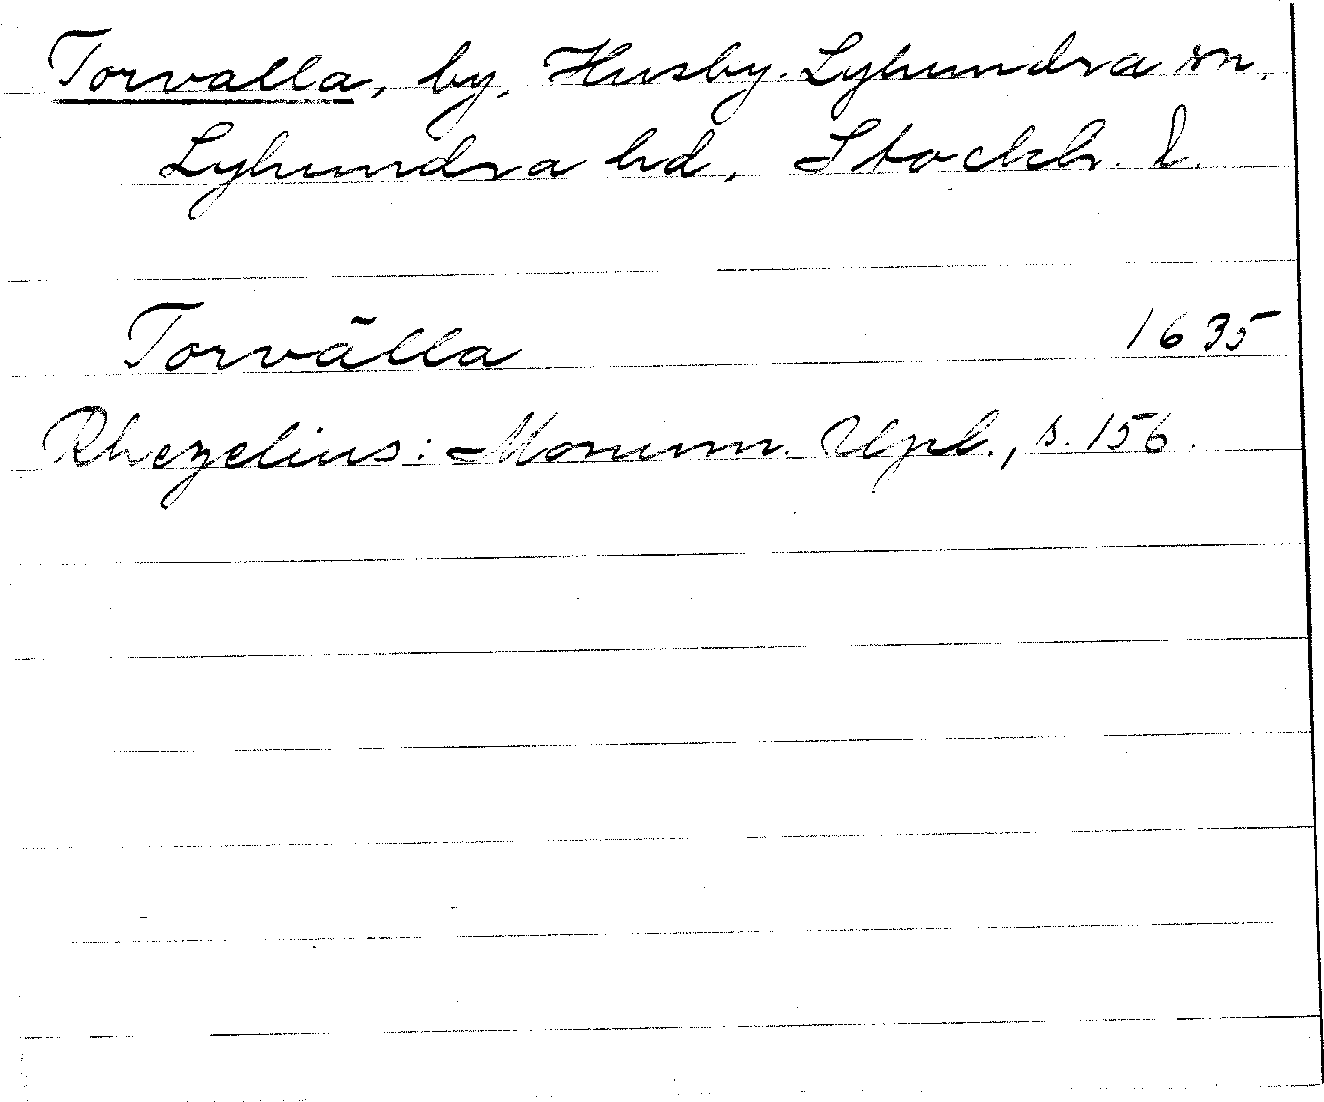 Torvalla, by, Husby-Lyhundra sn,
Lyhundra hd, Stockh. l.
Torvälla 1635
Rhezelius: Monum. Upl., s. 156.